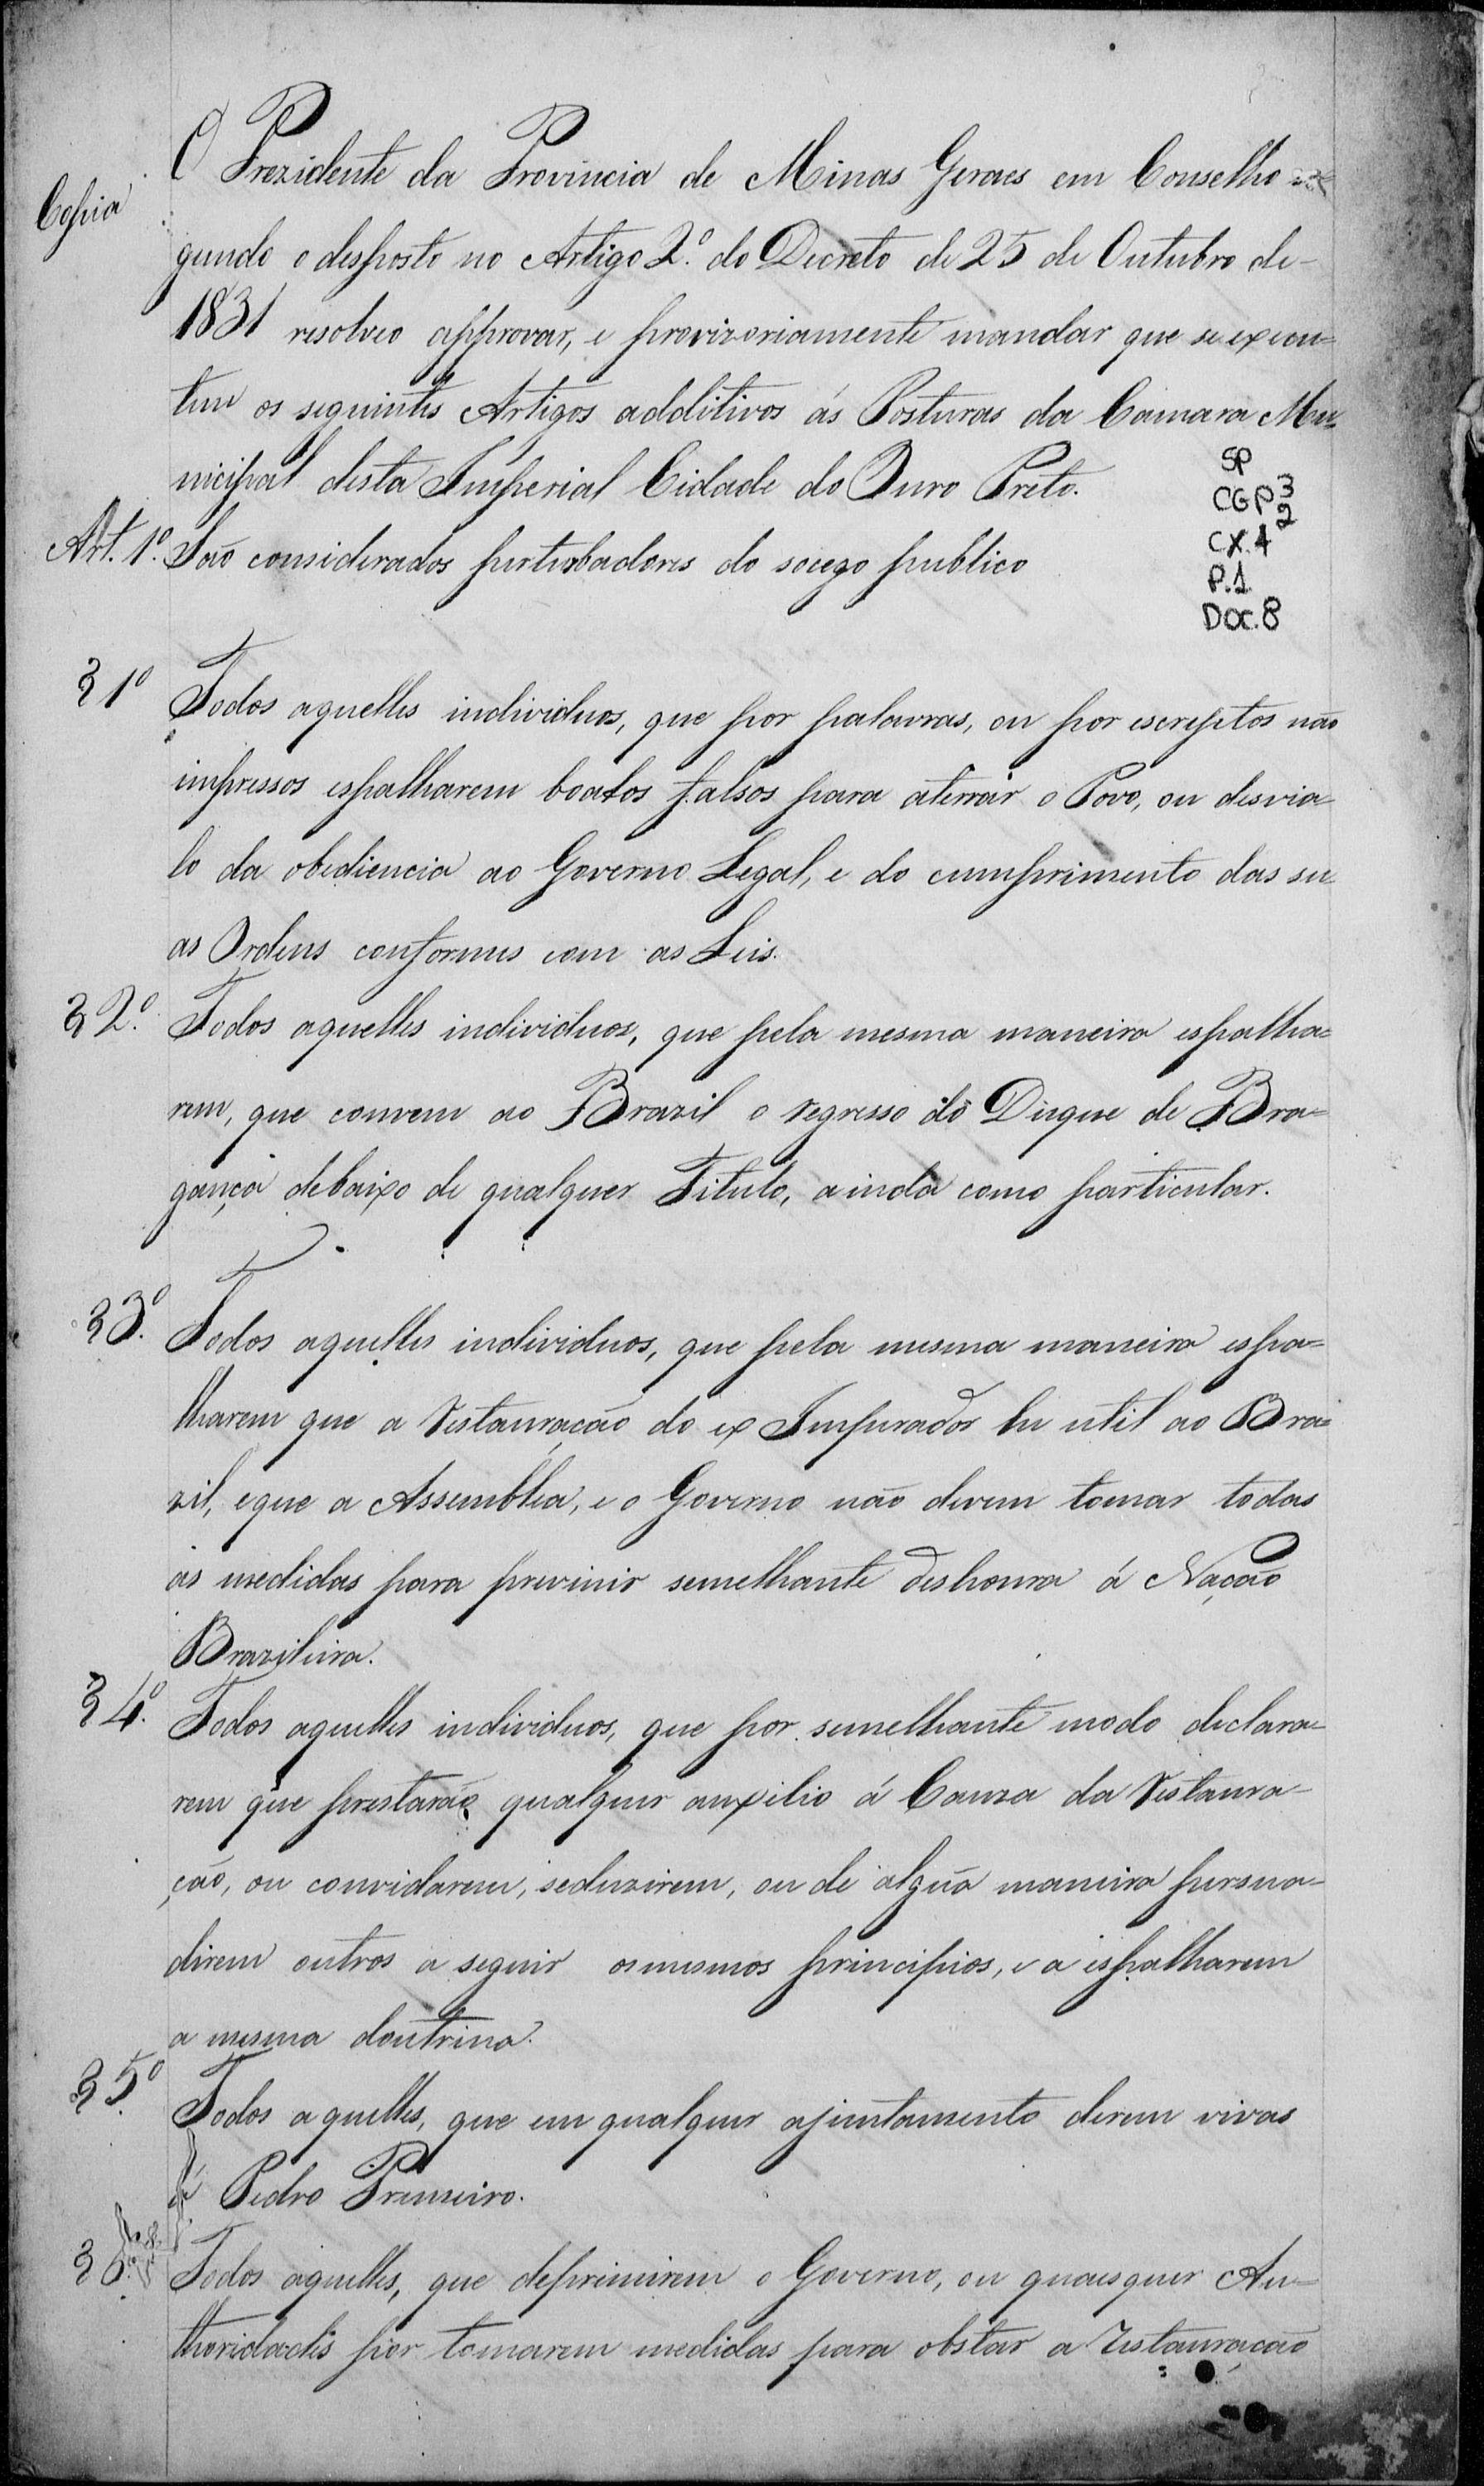 Copia
O Prezidente da Provincia de Minas Geraes em Conselho se-
gundo o desposto no Artigo 2.º do Decreto de 25 de Outubro de-
1831 resolveo approvar, e provizoriamente mandar que se execu-
tem os seguintes Artigos additivos ás Posturas da Camara Mu-
nicipal desta Imperial Cidade do Ouro Preto.
SP
CGP 3
2
CX. 4
P. 1
DOC. 8
Art. 1.º São considerados perturbadores do socego publico
§ 1º Todos aquelles individuos, que por palavras, ou por escreptos não
impressos espalharem boatos falsos para aterrar o Povo, ou desvia-
lo da obediencia ao Governo Legal, e do cumprimento das su-
as Ordens conformes com as Leis.
§ 2.º Todos aquelles individuos, que pela mesma maneira espalha-
rem, que convem ao Brazil o regresso do Duque de Bra-
gança debaixo de qualquer Titulo, ainda como particular.
§ 3.º Todos aquelles individuos, que pela mesma maneira espa-
lharem que a Restauração do ex Imperador he util ao Bra-
zil, e que a Assemblea, e o Governo não devem tomar todas
as medidas para previnir semelhante deshonra á Nação
Brazileira.
§ 4.º Todos aquelles individuos, que por semelhante modo declara-
rem que prestarão qualquer auxilio á Cauza da Restaura-
ção, ou convidarem, seduzirem, ou de algũa maneira persua-
direm outros a seguir os mesmos principios, e a espalharem
a mesma doutrina.
§ 5.º Todos aquelles, que em qualquer ajuntamento derem vivas
á Pedro Premeiro.
§ 6.º Todos aquelles, que deprimirem o Governo, ou quaesquer Au-
thoridades por tomarem medidas para obstar a restauração